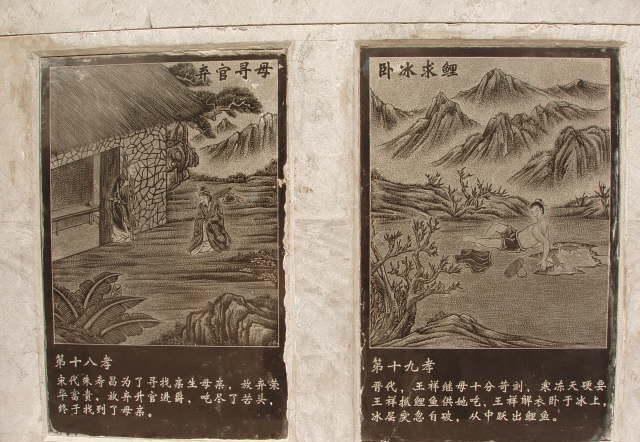 弃官寻母
第十八孝
宋代朱寿昌为了寻找亲生母亲，放弃荣
华富贵，放弃升官进爵，吃尽了苦头，
终于找到了母亲。
卧冰求鲤
第十九孝
晋代，王祥继母十分苛刻，寒冻天硬要
王祥抓鲤鱼供她吃，王祥解衣卧于冰上，
冰层突忽自破，从中跃出鲤鱼。